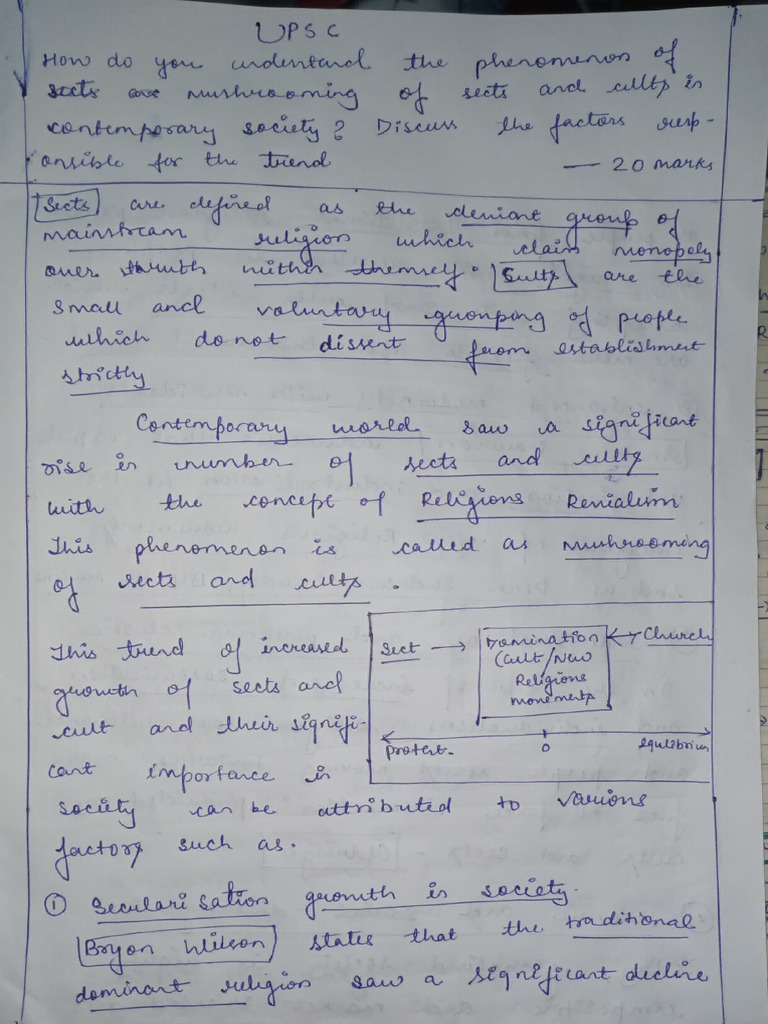 UPSC
How do you understand the phenomenon of
mushrooming of sects and cults in
contemporary society? Discuss the factors resp-
onsible for the trend — 20 marks
Sects are defined as the deviant group of
mainstream religion which claim monopoly
over truth within themself. Cults are the
small and voluntary grouping of people
which do not dissent from establishment
strictly
Contemporary world saw a significant
rise in number of sects and cults
with the concept of Religions Revialism
This phenomenon is called as mushrooming
of sects and cults.
This trend of increased
growth of sects and
cult and their signifi-
cant importance in
society can be attributed to various
factors such as.
Sect → Domination ← Church
(Cult/New
Religions
movements
Protest- 0 equlibrium
① Secularisation growth in society.
Bryon Wilson states that the traditional
dominant religion saw a significant decline